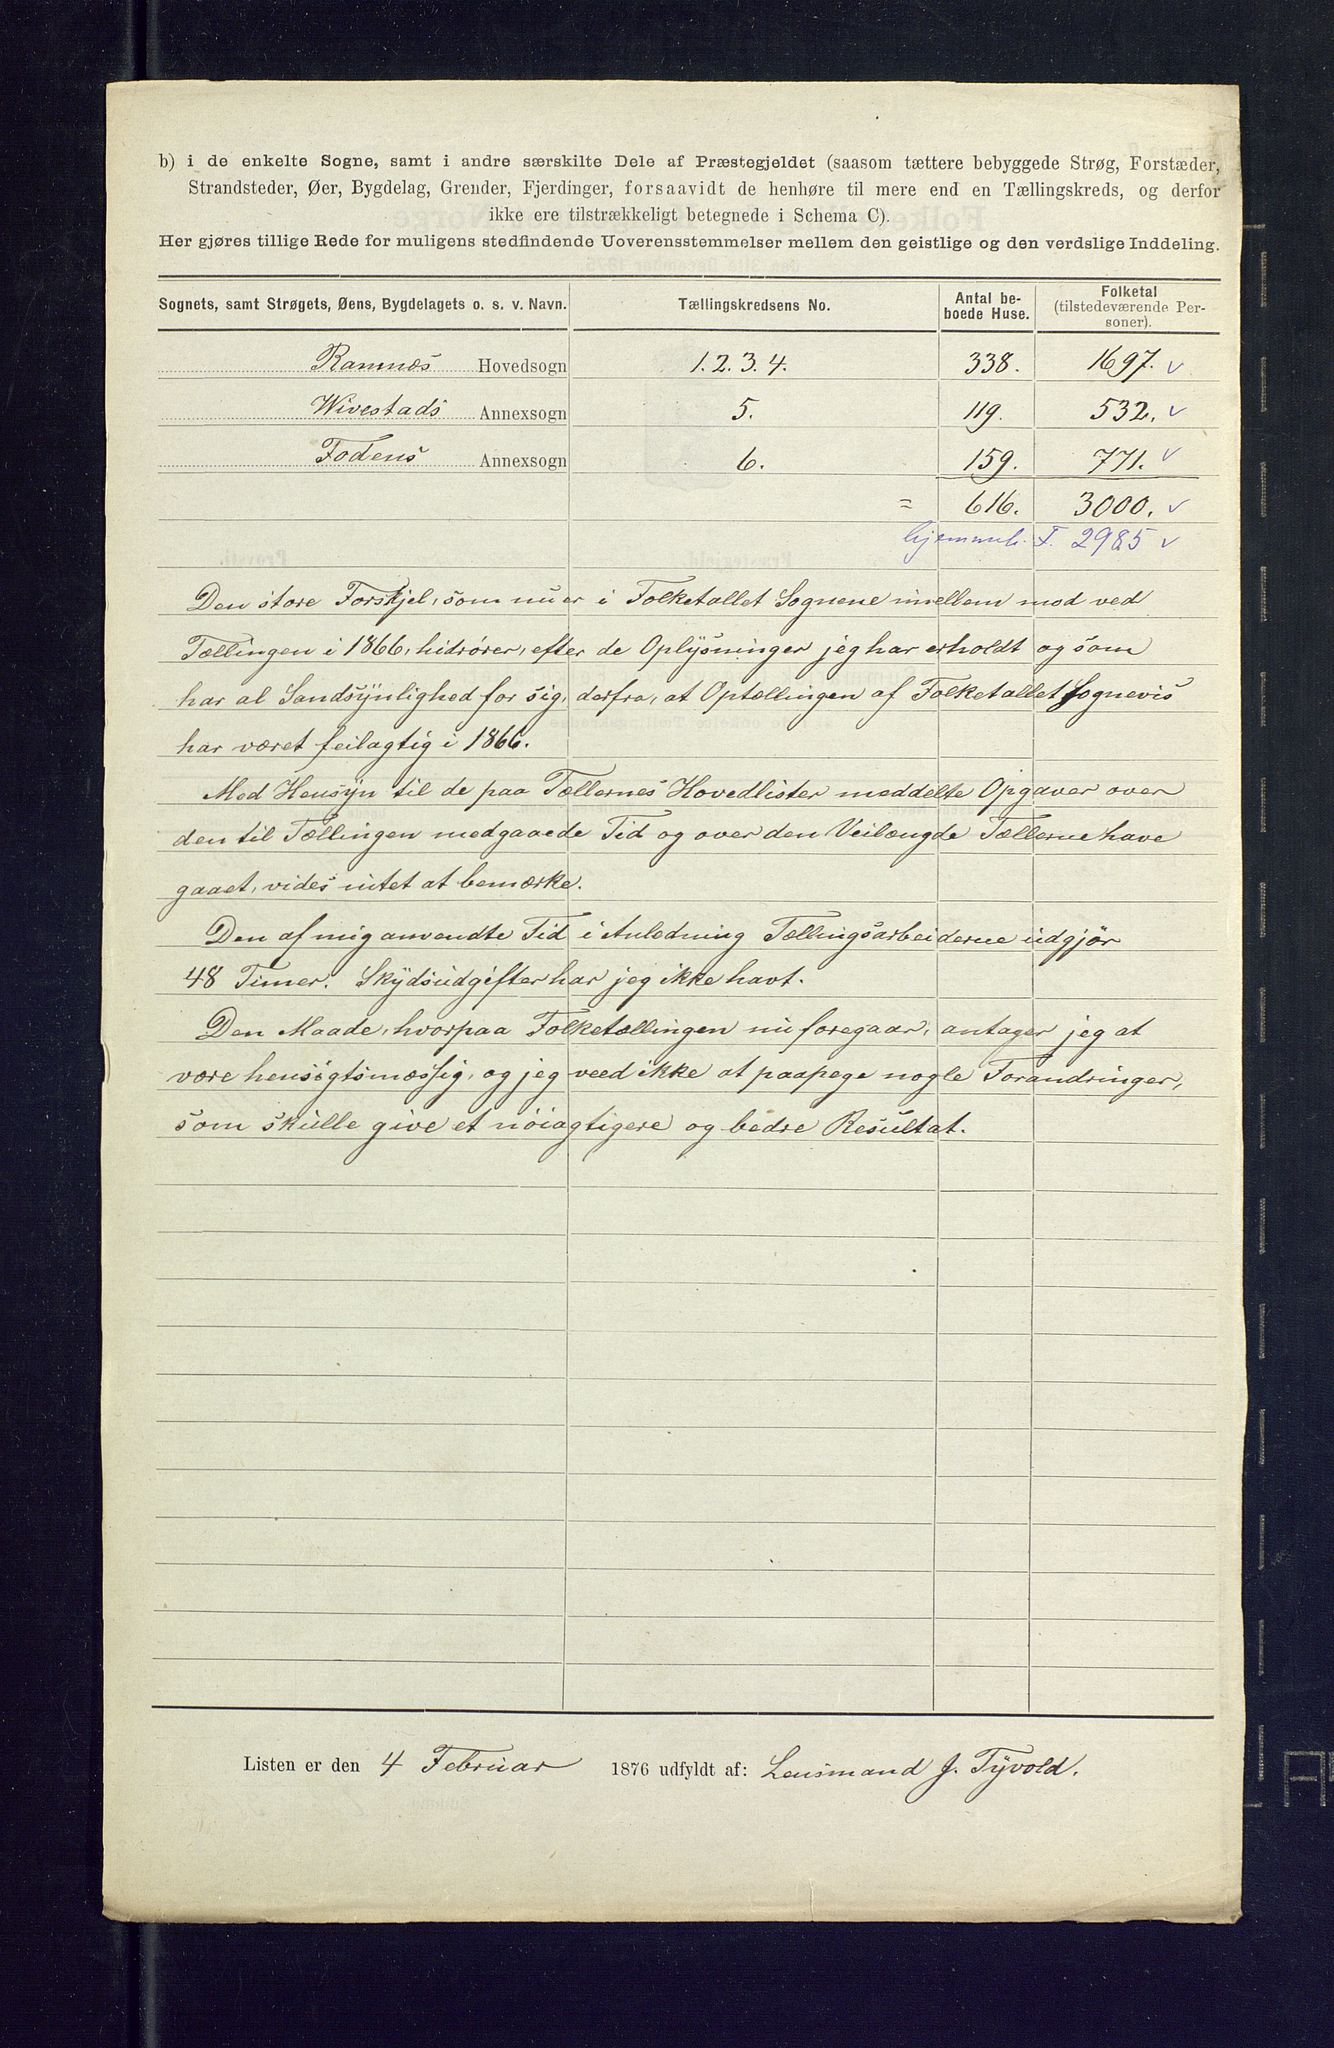 b) i de enkelte Sogne, samt i andre særskilte Dele af Præstegjeldet (saasom tættere bebyggede Strøg, Forstæder,
Strandsteder, Øer, Bygdelag, Grender, Fjerdinger, forsaavidt de henhøre til mere end en Tællingskreds, og derfor
ikke ere tilstrækkeligt betegnede i Schema C).
Her gjøres tillige Rede for muligens stedfindende Uoverensstemmelser mellem den geistlige og den verdslige Inddeling.
Sognets, samt Strøgets, Øens, Bygdelagets o. s. v. Navn. Tællingskredsens No. Antal beboede Huse. Folketal (tilstedeværende Personer).
Ramnæs Hovedsogn 1. 2. 3. 4. 338. 1697. ✓
Wivestads Annexsogn 5. 119. 532. ✓
Fodens Annexsogn 6. 159. 771. ✓
= 616. 3000. ✓
hjemmeh. F. 2985 ✓
Den store Forskjel, som nu er i Folketallet Sognene imellem mod ved
Tællingen i 1866, hidrører, efter de Oplysninger jeg har erholdt og som
har al Sandsynlighed for sig, derfra, at Optællingen af Folketallet Sognevis
har været feilagtig i 1866.
Med Hensyn til de paa Tællernes Hovedlister meddelte Opgaver over
den til Tællingen medgaaede Tid og over den Veilængde Tællerne have
gaaet, vides intet at bemærke.
Den af mig anvendte Tid i Anledning Tællingsarbeiderne udgjør
48 Timer. Skydsudgifter har jeg ikke havt.
Den Maade, hvorpaa Folketællingen nu foregaar, antager jeg at
være hensigtsmæssig, og jeg veed ikke at paapege nogle Forandringer,
som skulle give et nöiagtigere og bedre Resultat.
Listen er den 4 Februar 1876 udfyldt af: Lensmand J. Tyvold.